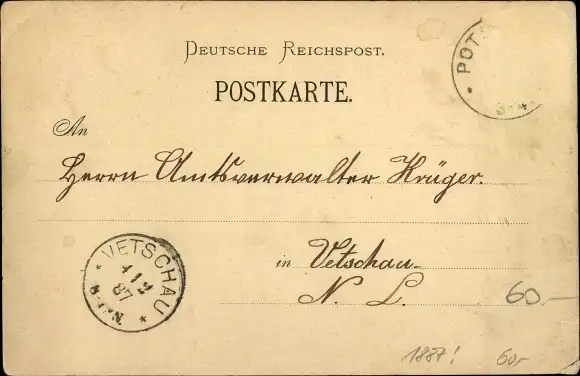 DEUTSCHE REICHSPOST.
POSTKARTE.
POT
An
Herrn Amtsverwalter Krüger.
in Vetschau.
N. L.
VETSCHAU
87
60.-
1887!
60.-